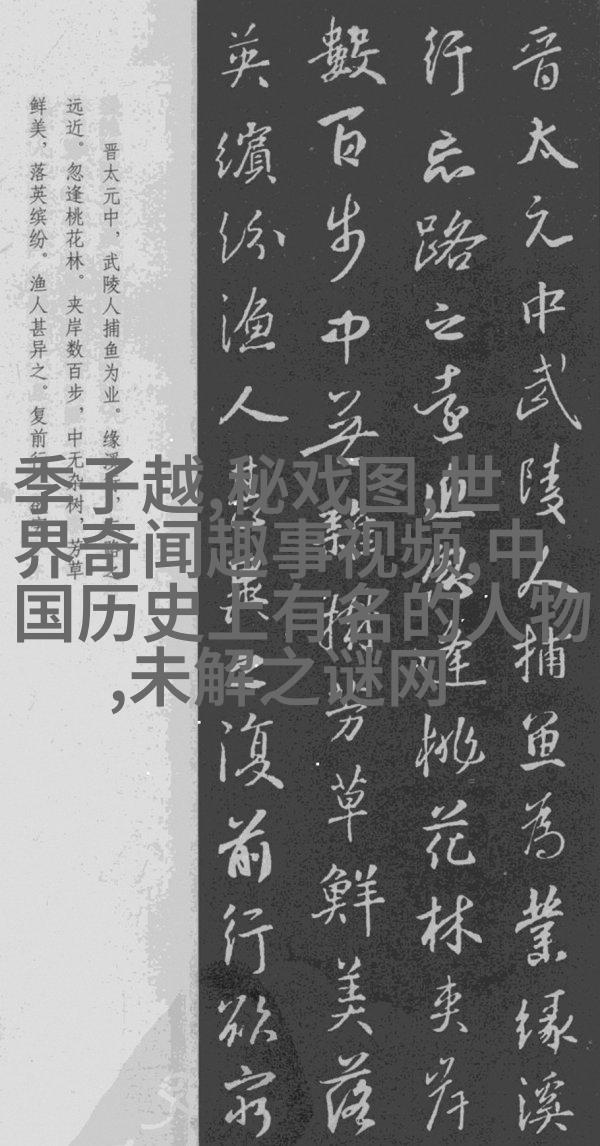 晋太元中武陵人捕魚為業緣溪
行忘路之遠近忽逢桃花林夾岸
數百步中無雜樹芳草鮮美落
英繽紛漁人甚異之復前行欲窮
晋太元中，武陵人捕鱼为业。缘溪
远近。忽逢桃花林。夹岸数百步，中无杂树，芳草
鲜美，落英缤纷。渔人甚异之。复前行
季子越,秘戏图,世
界奇闻趣事视频,中
国历史上有名的人物
,未解之谜网